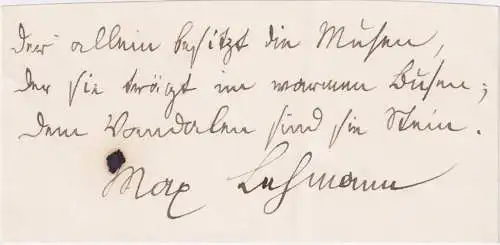 Der allein besitzt die Musen,
Der sie trägt im warmen Busen;
Dem Vandalen sind sie Stein.
Max Lehmann